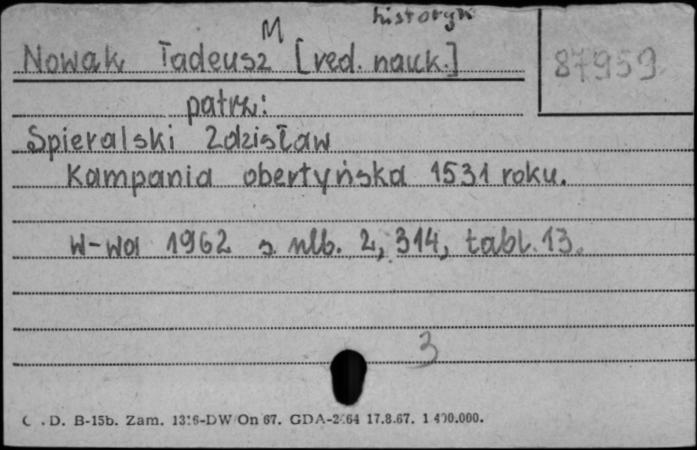 historyk
M
Nowak Tadeusz [red. nauk.]
87959
patrz:
Spieralski Zdzisław
Kampania obertyńska 1531 roku.
W-wa 1962 s. nlb. 2, 314, tabl. 13.
3
D. B-15b. Zam. On 67. 17.8.67.